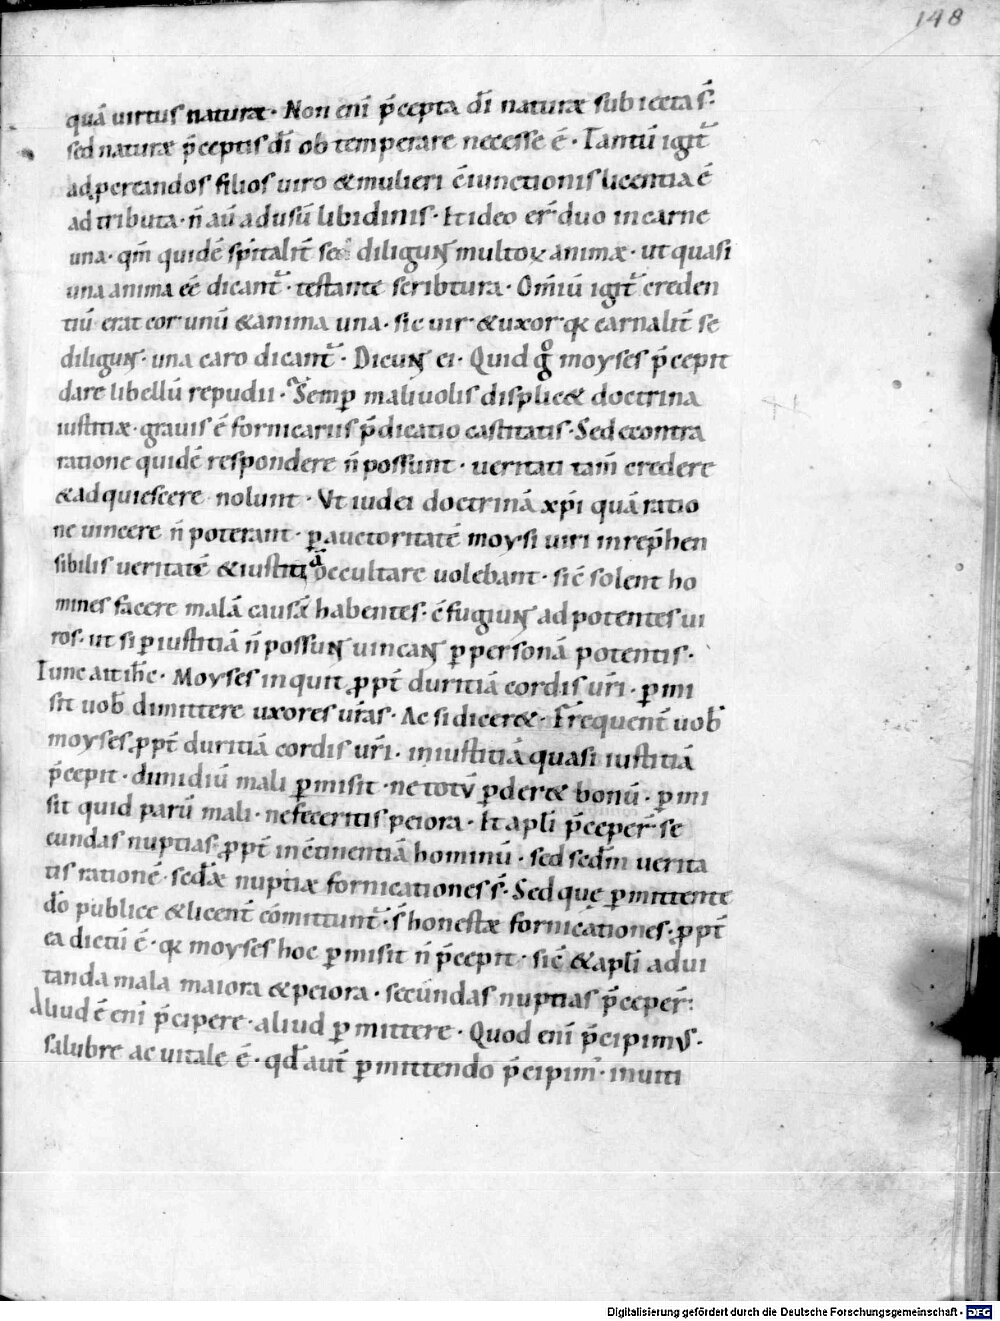 148
quā uirtus naturæ. Non enī p̄cepta dī naturæ subiecta s̄.
sed naturæ p̄ceptis dī obtemperare necesse ē. Tantū igit̄
ad pereandos filios uiro & mulieri ē iunctionis licentia ē
adtributa. n̄ aū adusū libidinis. Et ideo er̄ duo in carne
una. qm̄ quidē spītalit̄ se diligunt multoꝝ animæ. ut quasi
una anima eē dicant̄. testante scribtura. Omīū igit̄ creden
tiū erat cor unū & anima una. sic uir & uxor qꝛ carnalit̄ se
diligunt. una caro dicant̄. Dicunt ei. Quid gͦ moyses p̄cepit
dare libellū repudii. Semꝑ maliuolis displic& doctrina
iustitiæ. grauis ē fornicariis p̄dicatio castitatis. Sed econtra
ratione quidē respondere n̄ possunt. ueritati tam̄ credere
& adquiescere nolunt. Vt iudei doctrinā xp̄i quā ratio
ne uincere n̄ poterant. ꝑ auctoritatē moysi uiri inrep̄hen
sibilis ueritatē & iustitiā occultare uolebant. sic̄ solent ho
mines facere malā causā habentes. c̄fugiunt ad potentes ui
ros. ut si ꝑ iustitiā n̄ possunt uincant ꝑ personā potentis.
Tunc ait ih̄c. Moyses inquit ꝓpt̄ duritiā cordis ur̄i. ꝑmi
sit uob̄ dimittere uxores ur̄as. Ac si dicer&. Frequent̄ uob̄
moyses ꝓpt̄ duritiā cordis ur̄i. iniustitiā quasi iustitiā
p̄cepit. dimidiū mali ꝑmisit. ne totū ꝑder& bonū. ꝑmi
sit quid parū mali. ne feceritis peiora. Et apl̄i p̄ceper̄ se
cundas nuptias ꝓpt̄ inc̄tinentiā hominū. sed sedm̄ uerita
tis rationē. sed̄æ nuptiæ fornicationes s̄. Sed quę ꝑmittente
dō publice & licent̄ cōmittunt̄. s̄ honestæ fornicationes. ꝓpt̄
ea dictū ē. qꝛ moyses hoc ꝑmisit n̄ p̄cepit. sic̄ & apl̄i adui
tanda mala maiora & peiora. secūndas nuptias p̄ceper̄.
Aliud ē enī p̄cipere. aliud ꝑmittere. Quod enī p̄cipimus.
salubre ac uitale ē. qd̄ aut̄ ꝑmittendo p̄cipim̄. inuiti
Digitalisierung gefördert durch die Deutsche Forschungsgemeinschaft - DFG